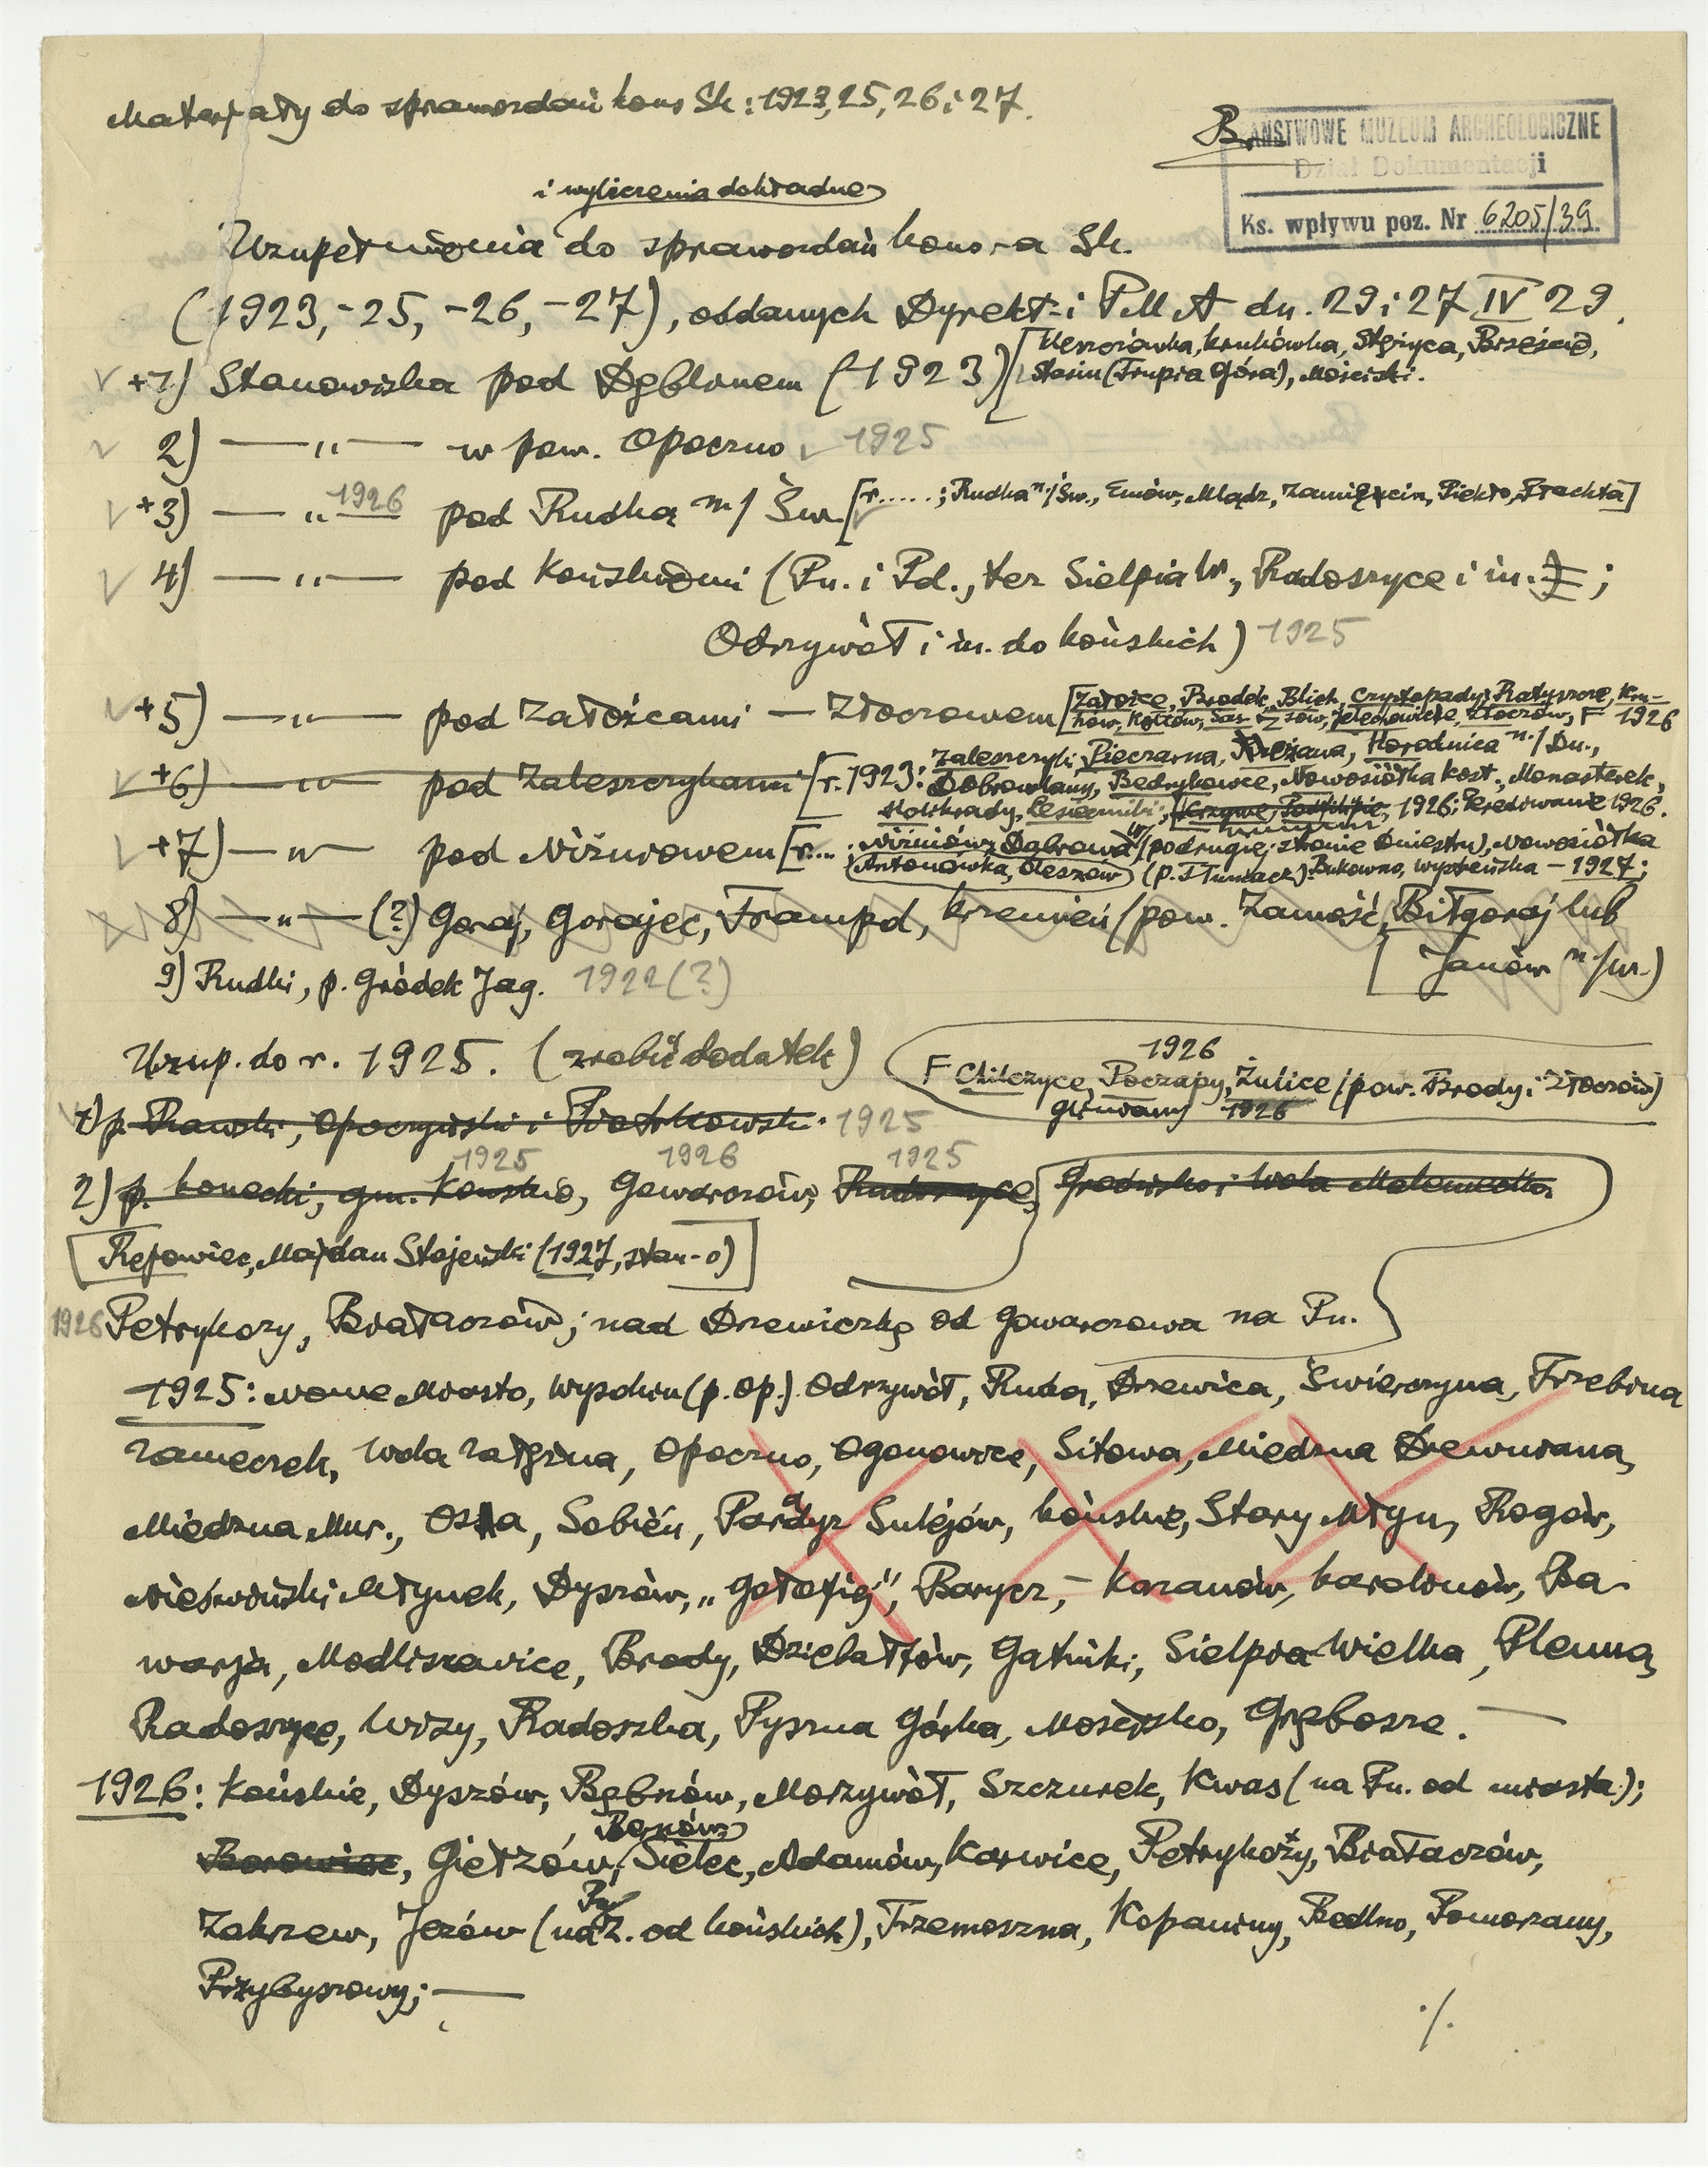 Materjały do sprawozdań kons Sk: 1923, 25, 26 i 27.
PAŃSTWOWE MUZEUM ARCHEOLOGICZNE
Dział Dokumentacji
Ks. wpływu poz. Nr 6205/39
i wyliczenia dokładne
Uzupełnienia do sprawozdań kons-a Sk.
(1923, -25, -26, -27), oddanych Dyrekt-i PMA dn. 29 i 27 IV 29.
+1) Stanowiska pod Dęblinem (1923) [Kleszczówka, Krukówka, Stężyca, Brzeście,
Stasin (Trupia Góra), Mościski.
2) — " — w pow. Opoczno 1925
+3) — " — 1926 pod Rudką n/Św. [r.....; Rudka n/Św., Emów, Mlądz, Zamięncin, Piekło, Prachta]
4) — " — pod Końskiemi (Pn. i Pd., ter Sielpia W., Radoszyce i in.);
Odrzywół i in. do Końskich) 1925
+5) — " — pod Załoźcami — Złoczowem [Załoźce, Brodek, Blich, Czystopady, Ratyszcze, Kru-
hów, Kołtów, Sas-sów, Jelechowicze, Złoczów, F 1926
+6) — " — pod Zaleszczykami [r. 1923: Zaleszczyki, Pieczarna, Horodnica n/Dn.,
Dobrowlany, Bedrykowce, Nowosiółka Kost., Monasterek,
1926.
+7) — " — pod Niżniowem [r.... Niżniów, Dąbrowa (po drugiej stronie Dniestru), Nowosiółka
Antonówka, Oleszów (p. Tłumacz). Bukowno, — 1927;
8) — " — (?) Goraj, Gorajec, Frampol, Krzemień (pow. Zamość, Biłgoraj lub
Janów n/w.)
9) Rudki, p. Gródek Jag. 1922(?)
Uzup. do r. 1925. (zrobić dodatek)
1926
F Chilczyce, Poczapy, Żulice (pow. Brody i Złoczów)
gliniany 1926
1) p. Rawski, Opoczyński i Piotrkowski. 1925
1925 1926 1925
2) p. konecki, gm. Końskie, Gowarczów, Radoszyce, Grodzisko i Wola
[Rejowiec, Majdan Stajeński (1927, stan-o)]
1926 Petrykozy, Białaczów; nad Drzewiczką od Gowarczowa na Pn.
1925: Nowe Miasto, Wysokin (p. Op.). Odrzywół, Ruda, Drzewica, Świerczyna, Trzebina
Zameczek, Wola Załężna, Opoczno, Ogonowice, Sitowa, Miedzna Drewniana,
Miedzna Mur., Ossa, Sobień, Paradyż Sulejów, Końskie, Stary Młyn, Rogów,
Nieświński Młynek, Dyszów, „Gołofig", Barycz, — Kozanów, Karolinów, Ba-
warja, Modliszewice, Brody, Dziebałtów, Gatniki, Sielpia Wielka, Plenna,
Radoszyce, Wisy, Radoszka, Pyszna Górka, Mościsko, Grębosze. —
1926: Końskie, Dyszów, Bębnów, Morzywół, Szczurek, Kwas (na Pn. od miasta);
Bernów
Borowiec, Giełzów, Sielec, Adamów, Korwice, Petrykozy, Białaczów,
Zakrzew, Jeżów (na Z. od Końskich), Trzemoszna, Kopaniny, Bedlno, Pomorzany,
Przybyszowy; —
./.